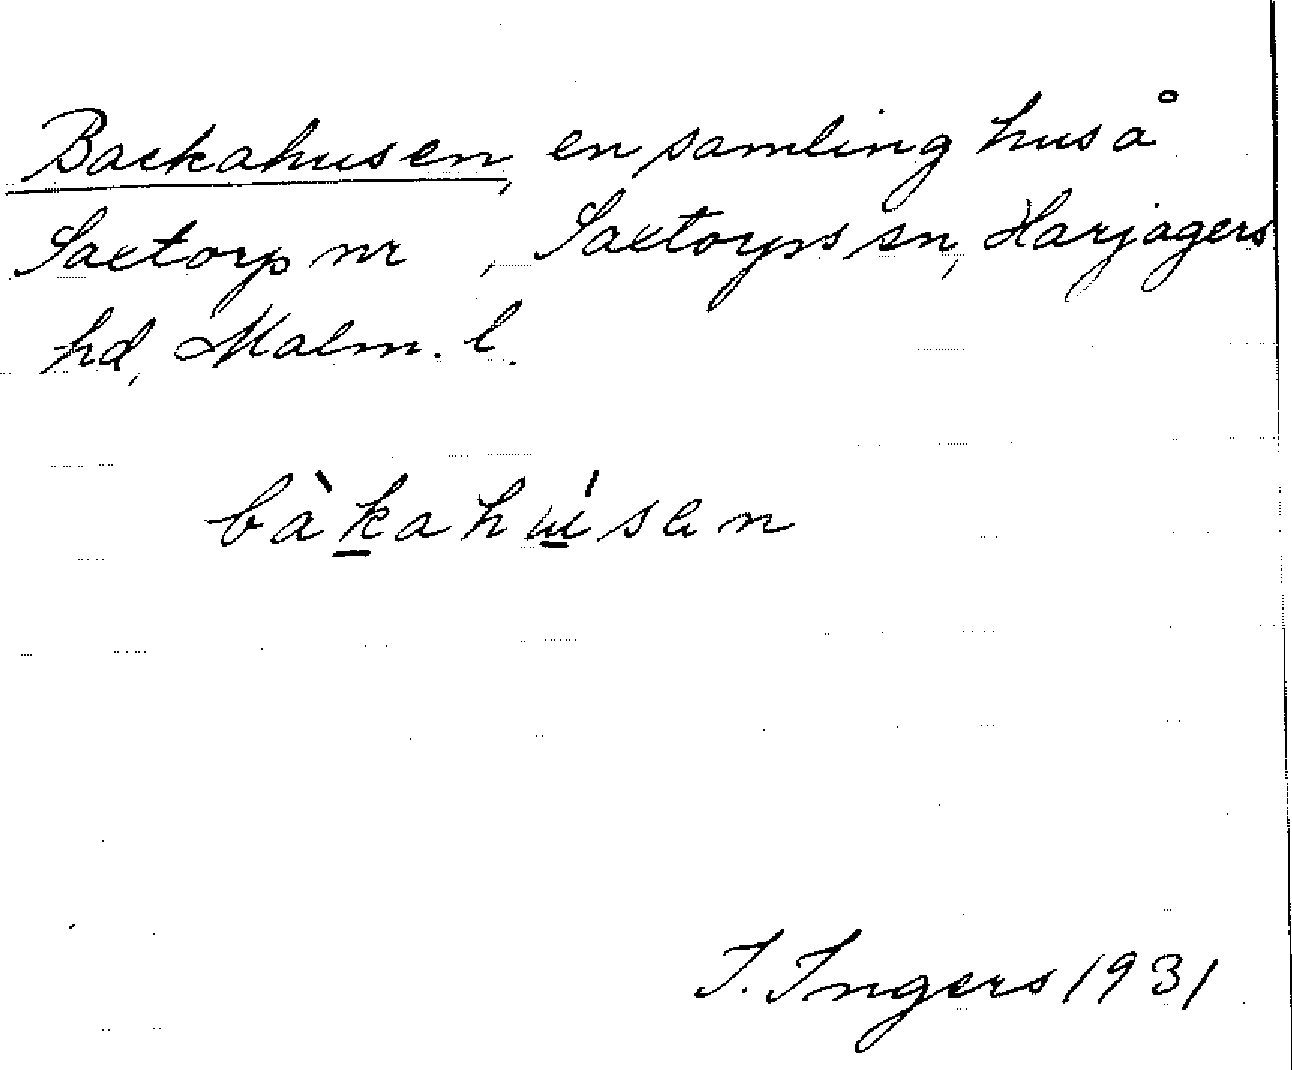 Backahusen, en samling hus å
Saxtorp nr , Saxtorps sn, Harjagers
hd, Malm. l.
bàk̲ahɯ̲́sən
I. Ingers 1931